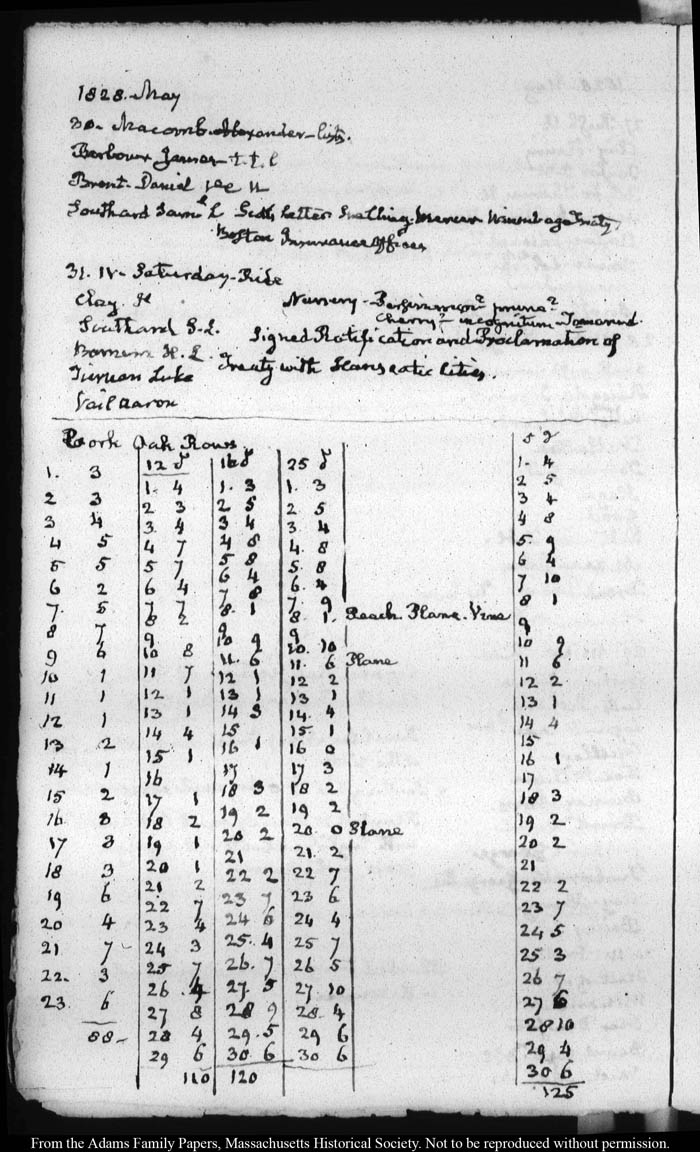 1828. May
30. Macomb. Alexander
Barbour James
Brent. Daniel
Southard Sam.l L Treaty
Boston Insurance Offices
31. IV. Saturday. Ride
Clay. H Nursery
Southard S. L. Signed Ratification and Proclamation of
Treaty with Hanseatic Cities.
Luke
Vail Aaron
Cork Oak Rows.
12 16 25 5
1. 3 1. 4 1. 3 1. 3 1. 4
2 3 2 3 2 5 2 5 2 5
3 4 3. 4 3 4 3. 4 3 4
4 5 4 7 4 8 4. 8 4 8
5 5 5 7 5 8 5. 8 5. 9
6 2 6 4 6 4 6. 4 6 4
7. 5 7 7 7 8 7. 9 7 10
8 7 8 2 8. 1 8. 1. Peach. Plane. Vine 8 1
9 6 9 9 9 9
10 1 10 8 10 9 10. 10 10 9
11 1 11 7 11. 6 11. 6 Plane 11 6
12 1 12 1 12 1 12 2 12 2
13 2 13 1 13 1 13 1 13 1
14 1 14 4 14 3 14. 4 14 4
15 2 15 1 15 15 1 15
16. 3 16 16 1 16 0 16 1
17 3 17 1 17 17 3 17
18 3 18 2 18 3 18 2 18 3
19 6 19 1 19 2 19 2 19 2
20 4 20 1 20 2 20. 0 Plane 20 2
21 7 21 2 21 21. 2 21
22. 3 22 7 22 2 22 7 22 2
23. 6 23 4 23 7 23 6 23 7
88 24 3 24 6 24 4 24 5
25 7 25. 4 25 7 25 3
26 4 26. 7 26 5 26 7
27 8 27. 5 27. 10 27 6
28 4 28 9 28. 4 28 10
29 6 29. 5 29 6 29 4
110 30. 6 30 6 30 6
120 125
From the Adams Family Papers, Massachusetts Historical Society. Not to be reproduced without permission.